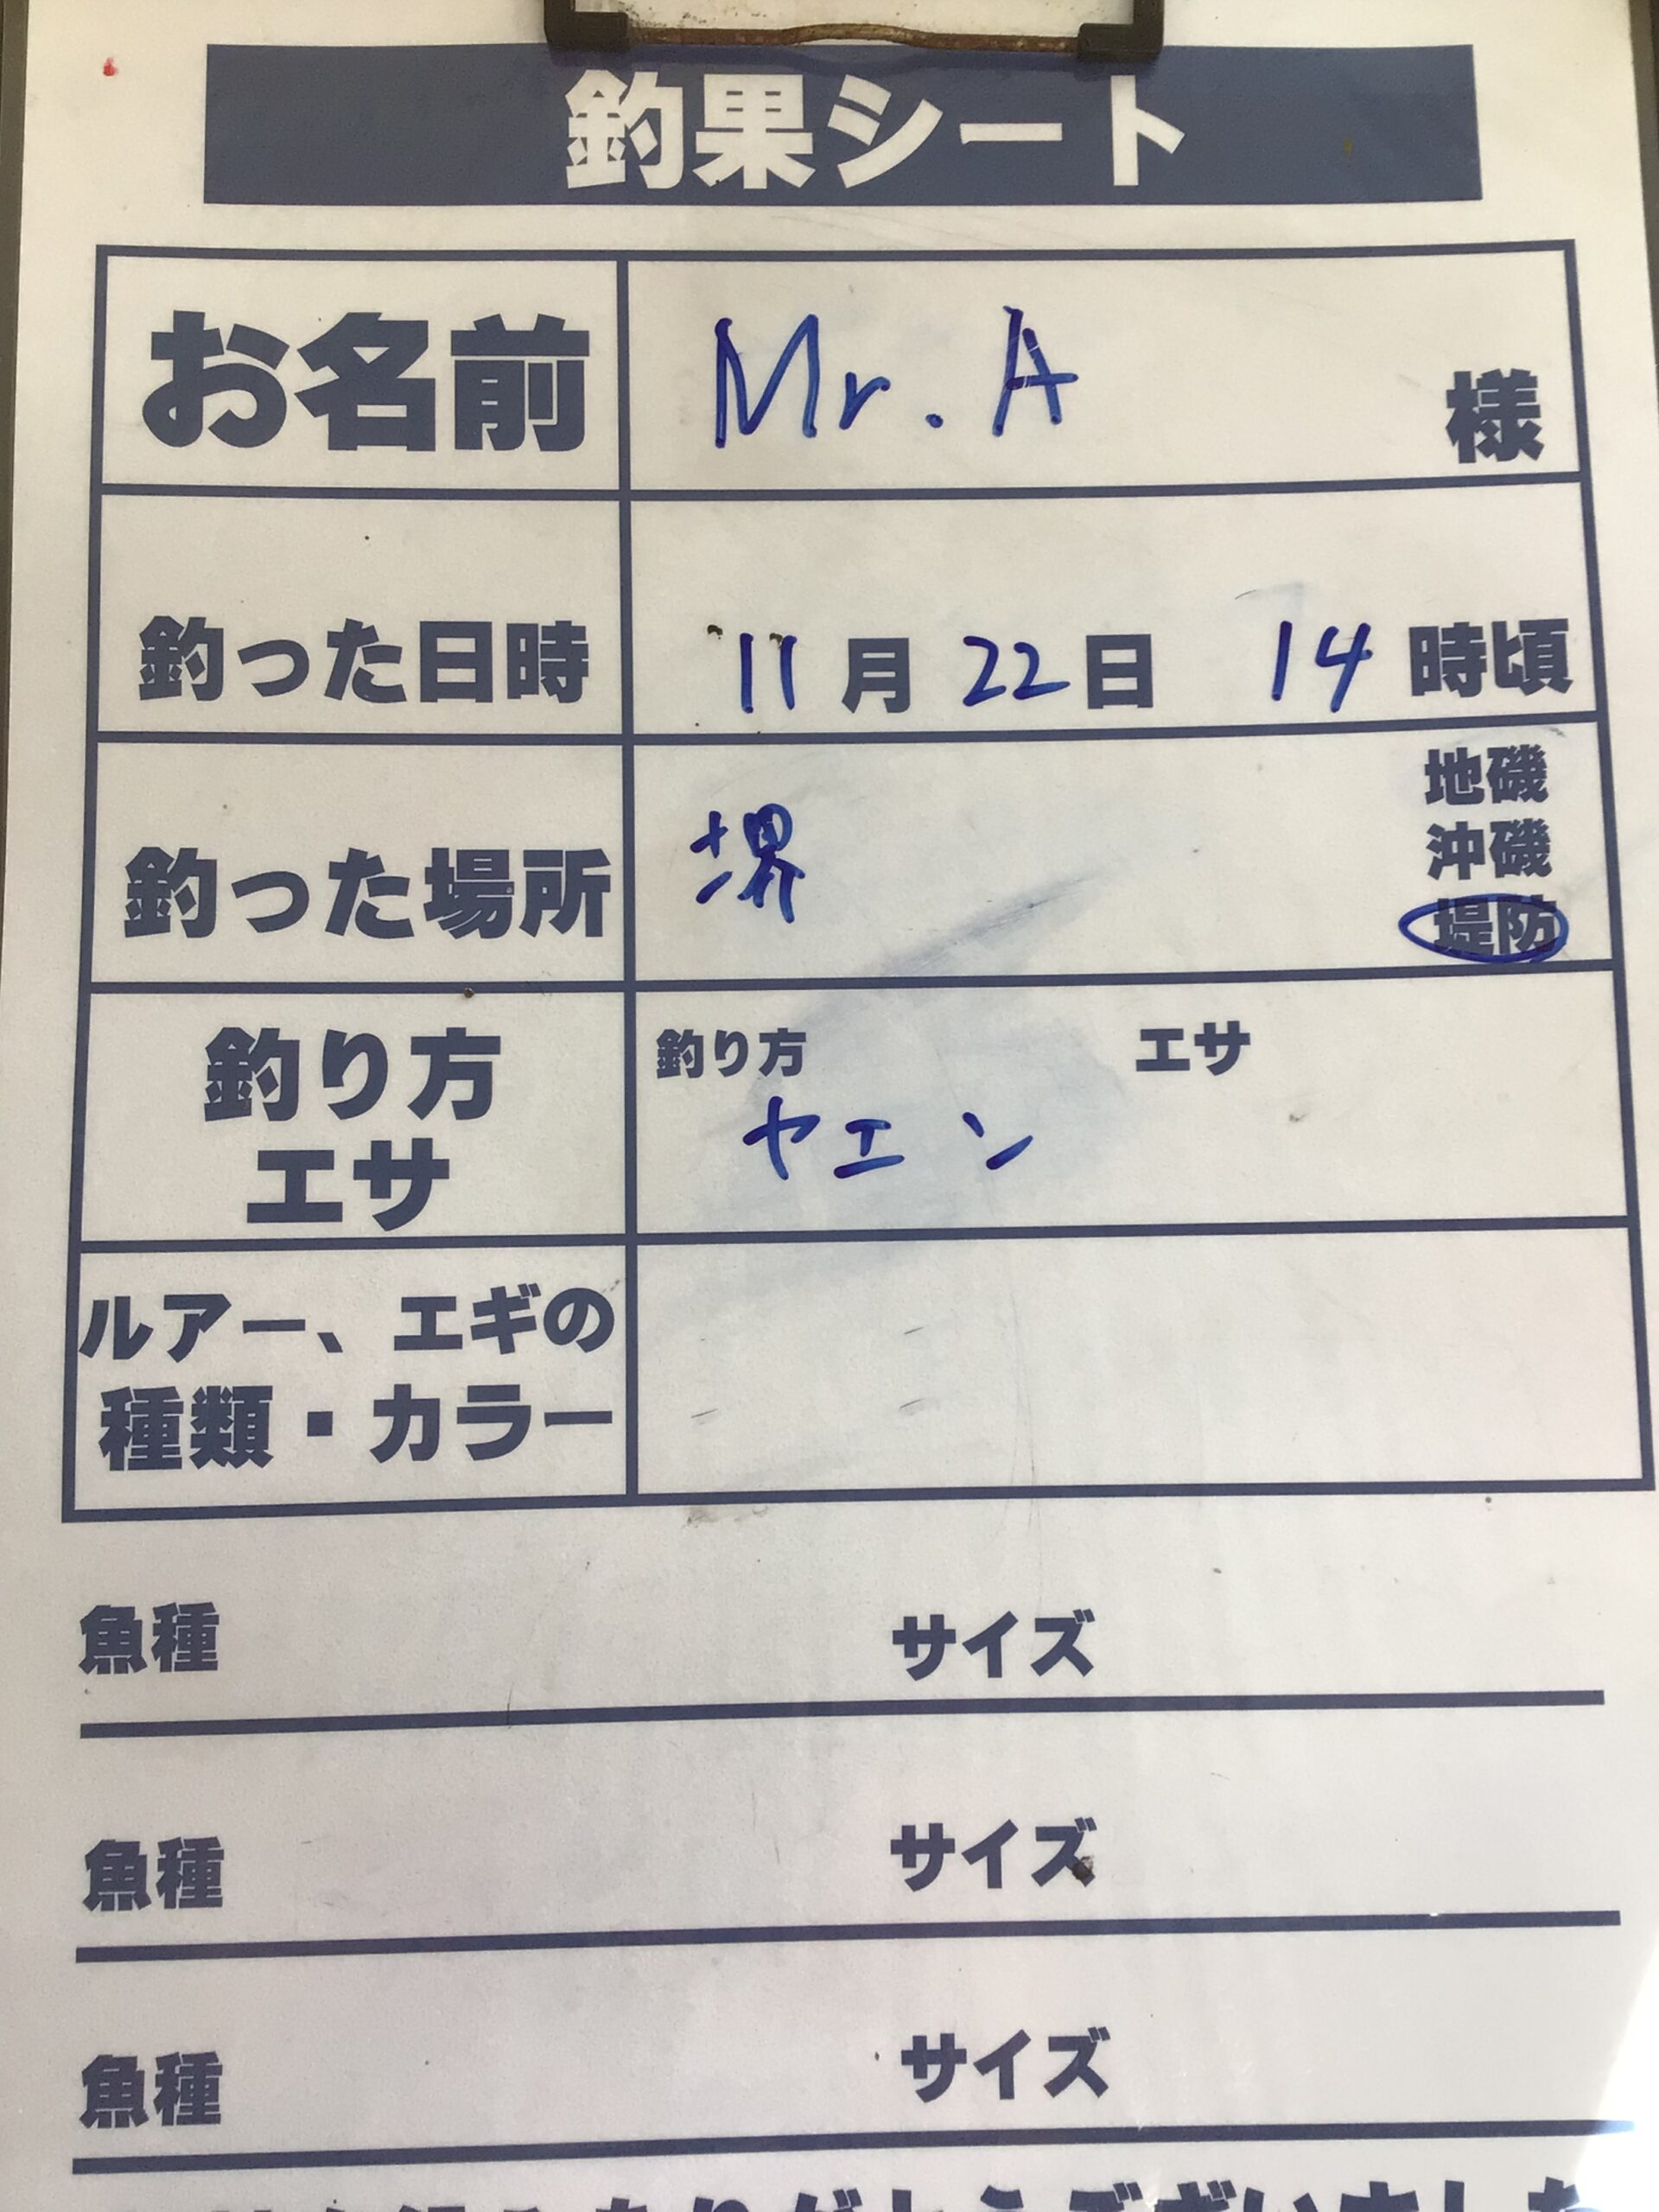 釣果シート
お名前 Mr. A 様
釣った日時 11月22日 14時頃
釣った場所 堺 地磯
沖磯
堤防
釣り方 エサ
釣り方
エサ
ヤエン
ルアー、エギの
種類・カラー
魚種 サイズ
魚種 サイズ
魚種 サイズ
ありがとうございました